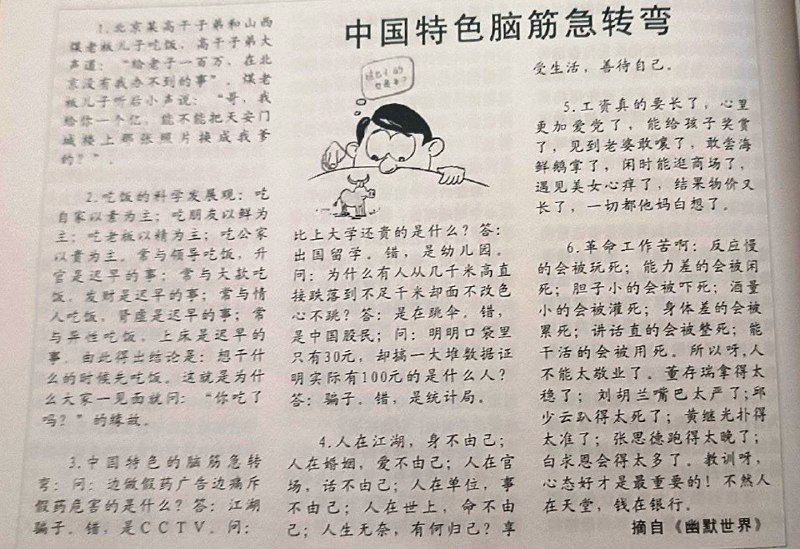 中国特色脑筋急转弯
1.北京某高干子弟和山西
煤老板儿子吃饭，高干子弟大
声道：“给老子一百万，在北
京没有我办不到的事”。煤老
板儿子听后小声说：“哥，我
给你一个亿，能不能把天安门
城楼上那张照片换成我爹
的？”。
2.吃饭的科学发展观：吃
自家以素为主；吃朋友以鲜为
主；吃老板以精为主；吃公家
以贵为主。常与领导吃饭，升
官是迟早的事；常与大款吃
饭，发财是迟早的事；常与情
人吃饭，肾虚是迟早的事；常
与异性吃饭，上床是迟早的
事。由此得出结论是：想干什
么的时候先吃饭。这就是为什
么大家一见面就问：“你吃了
吗？”的缘故。
3.中国特色的脑筋急转
弯：问：边做假药广告边痛斥
假药危害的是什么？答：江湖
骗子。错，是CCTV。问：
比上大学还贵的是什么？答：
出国留学。错，是幼儿园。
问：为什么有人从几千米高直
接跌落到不足千米却面不改色
心不跳？答：是在跳伞。错，
是中国股民；问：明明口袋里
只有30元，却搞一大堆数据证
明实际有100元的是什么人？
答：骗子。错，是统计局。
4.人在江湖，身不由己；
人在婚姻，爱不由己；人在官
场，话不由己；人在单位，事
不由己；人在世上，命不由
己；人生无奈，有何归己？享
受生活，善待自己。
5.工资真的要长了，心里
更加爱党了，能给孩子奖赏
了，见到老婆敢嚷了，敢尝海
鲜鹅掌了，闲时能逛商场了，
遇见美女心痒了，结果物价又
长了，一切都他妈白想了。
6.革命工作苦啊：反应慢
的会被玩死；能力差的会被闲
死；胆子小的会被吓死；酒量
小的会被灌死；身体差的会被
累死；讲话直的会被整死；能
干活的会被用死。所以呀，人
不能太敬业了。董存瑞拿得太
稳了；刘胡兰嘴巴太严了；邱
少云趴得太死了；黄继光扑得
太准了；张思德跑得太晚了；
白求恩会得太多了。教训呀，
心态好才是最重要的！不然人
在天堂，钱在银行。
摘自《幽默世界》